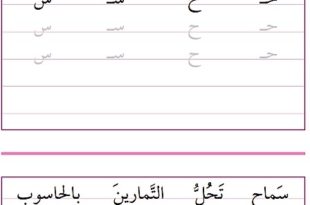 حـ ح سـ س
حـ ح سـ س
حـ ح سـ س
سَماح تَحُلُّ التَّمارينَ بِالحاسوبِ